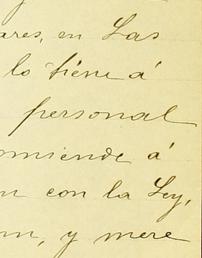 ares, en Las
lo tiene á
personal
omiende á
n con la Ley,
m, y mere